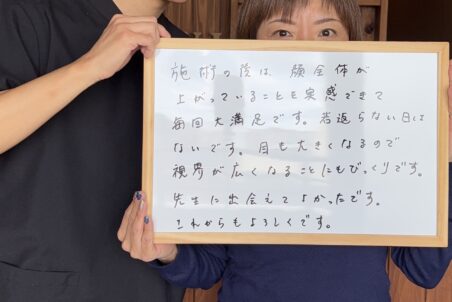 施術の後は 顔全体が
上がっていることを実感できて
毎回大満足です。若返らない日は
ないです。目も大きくなるので
視界が広くなることにもびっくりです。
先生に出会えてよかったです。
これからもよろしくです。